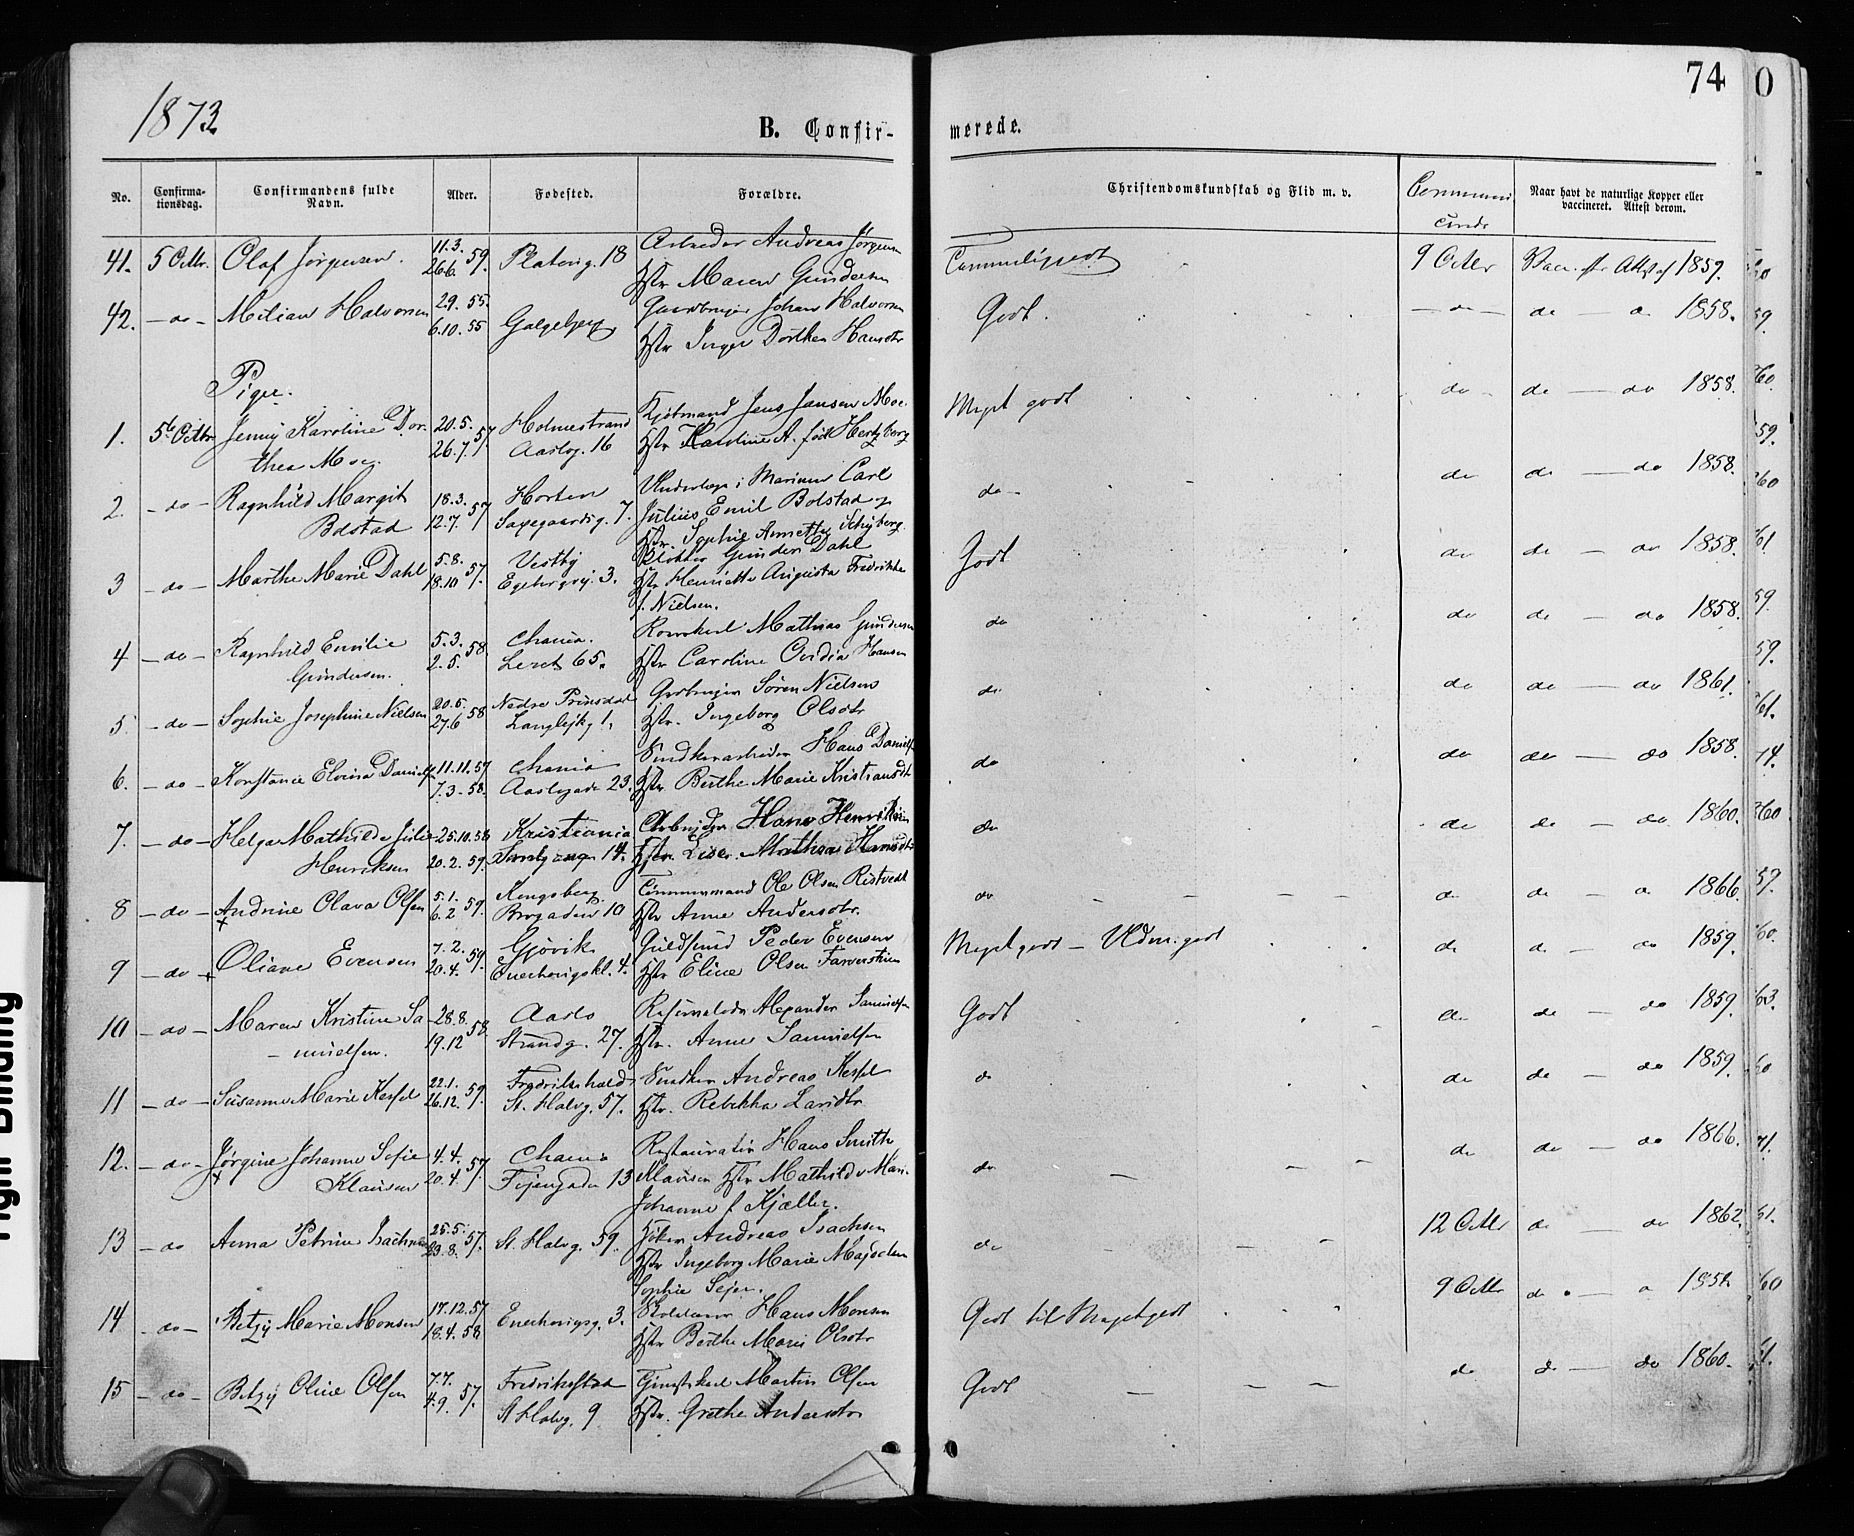 1873.
B. Confir-
merede.
74
No.
Confirma-
tionsdag.
Confirmandens fulde
Navn.
Alder.
Fødested.
Forældre.
Christendomskundskab og Flid m. v.
Naar havt de naturlige Kopper eller
vaccineret. Attest derom.
41. 5 Octbr. Olaf Jørgensen. 11.3. 59. 26.6. Platousg. 18 Arbeider Andreas Jørgensen
Hstr Maren Gundersen
9 Octbr 1859.
42. - do - Milian Halvorsen 29. 55. 6.10. 55 Galgebjerg Johan Halvorsen
Hstr Inger Dorthea Hansdtr
Godt. - do - do 1858.
Piger.
1. 5te Octbr Jenny Karoline Dor- 20.5. 57. Holmestrand Kjøbmand Jens Jansen Moe
thea Moe. 26.7. Aaslog. 16 Hstr Karoline A. født Hertzberg
Meget godt do do - do 1858.
2. - do - Ragnhild Margit 18.3. 57 Horten Underlæge i Marinen Carl
Bolstad 12.7. Saxegaardsg. 7. Julius Emil Bolstad og
Hstr. Sophie Annette Schyberg
do - do do - do 1858.
3 - do - Marthe Marie Dahl 5.8. 57. Vestby Gunder Dahl
18.10 Egebergvj. 3. Hstr Henriette Augusta Fredrikke
f. Nielsen.
Godt do do - do 1858.
4 - do - Ragnhild Emilie 5.3. 58. Chania. Mathias Gundersen
Gundersen. 2.5. Leret 65. Hstr Caroline Ovidia Hansen
do do do - do 1858.
5. - do - Sophie Josephine Nielsen 20.5. 58 Nedre Prinsdal Søren Nielsen
27.6 Hstr. Ingeborg Olsdtr
do do do - do 1861.
6. - do - Konstance Elvina Danielse 11.11.57 Chania Snedkerarbeider Hans Danielse
7.3-58. Aaslogade 23. Hstr Berthe Marie Kristiansdt
do do do - do 1858.
7. - do - Helga Mathilde Julie 25.10.58 Kristiania Arbejder Hans Henriksen
Henriksen 20.2.59. 14. Hstr. Lise Mathea Hansdtr
do do do - do 1860.
8 - do - Andrine Olava Olsen 5.1. 59. Kongsberg Tømmermand Ole Olsen Ristvedt
6.2 Brogaden 10 Hstr Anne Andersdtr.
do do do - do 1866.
9 - do - Oliane Evensen 7.2. 59. Gjøvik Guldsmed Peder Evensen
20.4. Enerhougskl. 4. Hstr Eline Olsen
Meget godt - Udm. godt do do - do 1859.
10 - do - Maren Kristine Sa- 28.8. 58. Aaslo Alexander Samuelsen
- muelsen. 19.12 Strandg. 27. Hstr. Anne Samuelsen
Godt do do - do 1859.
11 - do - Susanne Marie Kessel 22.1. 59. Fredrikshald Snedker Andreas Kessel
26.12. St. Halvg. 57. Hstr. Rebekka Larsdtr
do do do - do 1859.
12. - do - Jørgine Johanne Sofie 4.4. 57. Chania Restauratør Hans Smith
Klausen 20.4. Tøjengaden 13 Klausen Hstr Mathilde Mari-
Johanne f Kjøller.
do do do - do 1866.
13 - do Anna Petrine Isachsen 25.5. 57. St. Halvg. 59. Andreas Isachsen
23.8. Hstr Ingeborg Marie Magdalene
Sophie
do 12 Octbr do - do 1862.
14 - do - Betzy Marie Monsen 17.12.57 Enerhougsg. 3. Hans Monsen
18.4.58 Hstr Berthe Marie Olsdtr
Godt til Meget godt 9 Octbr do - do
15 - do - Betzy Oline Olsen 7.7. 57. Fredrikstad Martin Olsen
4.9. St Halvg. 9 Hstr. Grethe Andersdtr
Godt do do - do 1860.